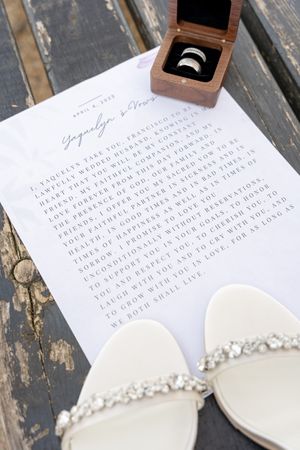 APRIL 8, 2023
Yaquelyn's Vows
I, YAQUELYN TAKE YOU, FRANCISCO TO BE MY
LAWFULLY WEDDED HUSBAND, KNOWING IN MY
HEART THAT YOU WILL BE MY CONSTANT
FRIEND, MY FAITHFUL COMPANION, AND MY
LOVE FOREVER FROM THIS DAY FORWARD. IN
THE PRESENCE OF GOD, OUR FAMILY AND
FRIENDS, I OFFER YOU MY SACRED VOW TO BE
YOUR FAITHFUL PARTNER IN SICKNESS AND IN
HEALTH, IN GOOD TIMES AND IN BAD TIMES, IN
TIMES OF HAPPINESS AS WELL AS IN TIMES OF
SORROW. I PROMISE TO LOVE YOU
UNCONDITIONALLY WITHOUT RESERVATIONS,
TO SUPPORT YOU IN YOUR GOALS, TO HONOR
YOU AND RESPECT YOU, TO CHERISH YOU, TO
LAUGH WITH YOU AND TO CRY WITH YOU, AND
TO GROW WITH YOU IN LOVE, FOR AS LONG AS
WE BOTH SHALL LIVE.